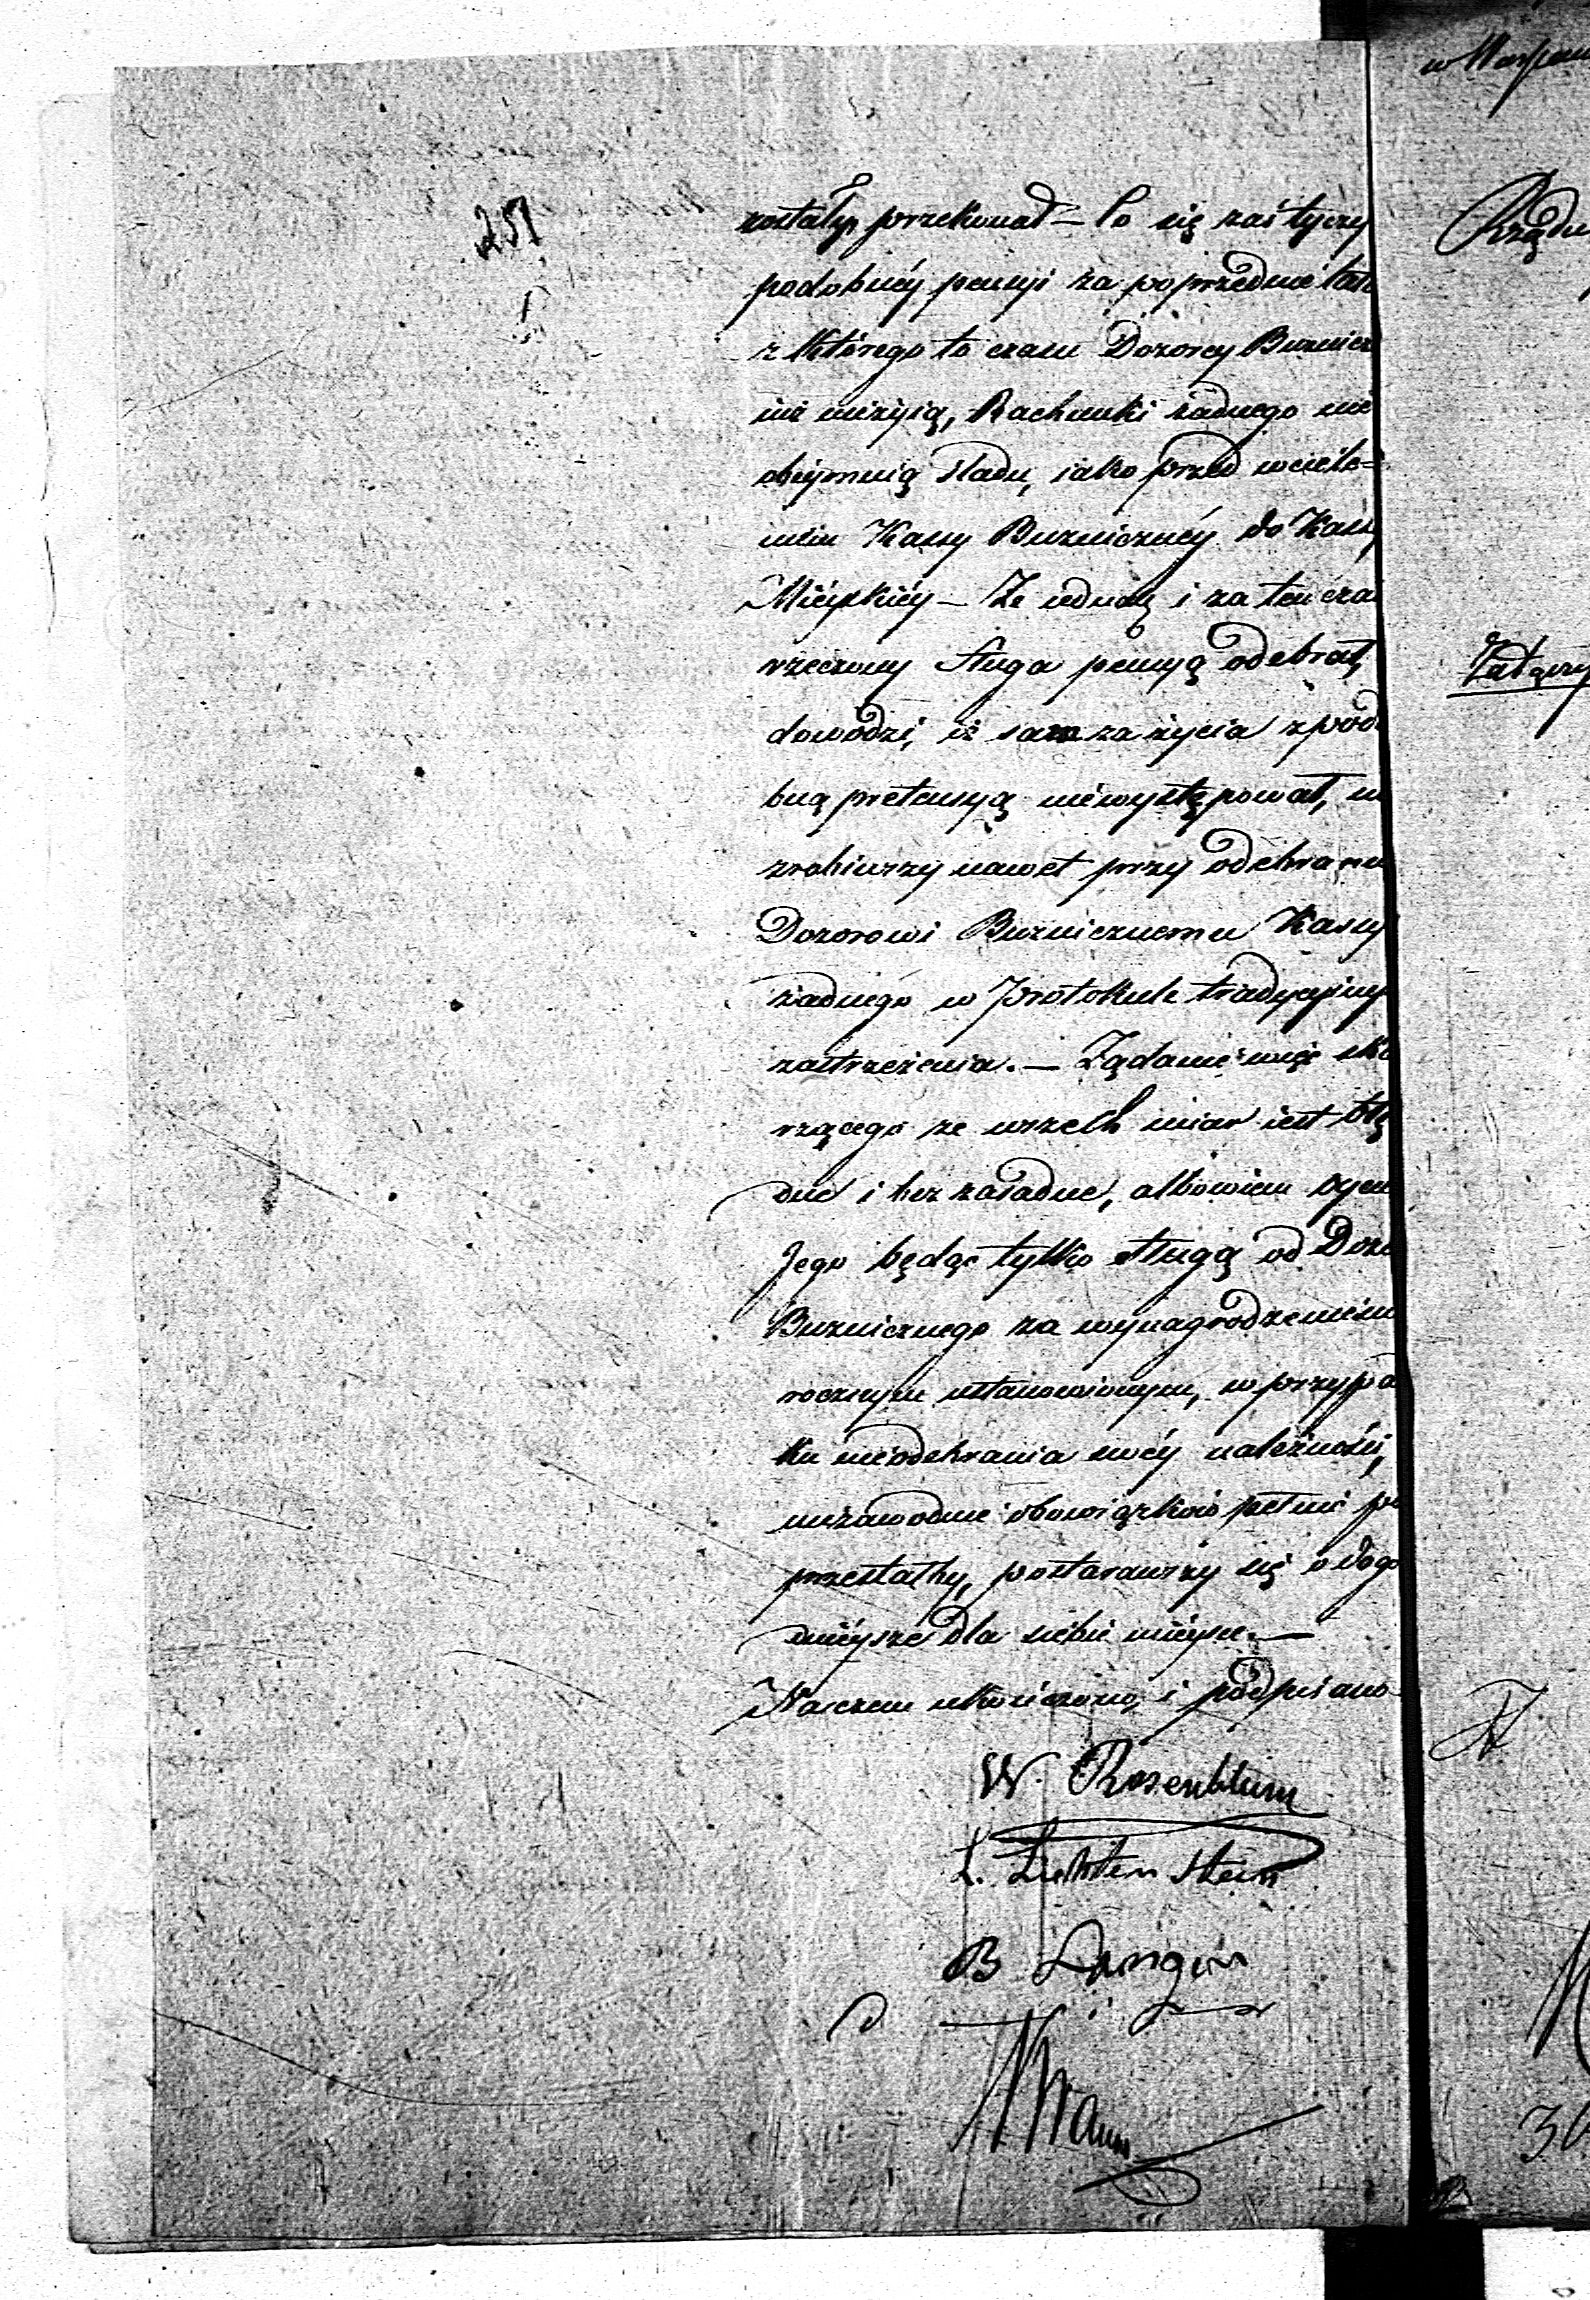 251
zostały, przekonał – Co się zaś tyczy
podobnéy pensyi za poprzednie lata
z którego to czasu Dozorcy Bużnicz
iuż nieżyią, Rachunki żadnego nie
obeymuią śladu, iako przed wciele-
niem Kassy Bużniczney do Kassy
Mieyskiéy – Że iednak i za ten czas
rzeczony Sługa pensyą odebrał,
dowodzi, iż sam za życia z podo
bną pretensyą niewystępował, nie
zrobiwszy nawet przy odebraniu
Dozorowi Bużnicznemu Kassy
żadnego w Protokule tradycyinym
zastrzeżenia. – Żądanie więc ska
rzącego ze wszech miar iest błę
dne i bezzasadne, albowiem oyciec
Jego będąc tylko sługą od Dozo
Bużnicznego za wynagrodzeniem
rocznym ustanowionym, w przypad
ku nieodebrania swéy należności,
niezawodnie obowiązków pełnić po
przestałby, postarawszy się o dogo
dnieysze dla siebie mieysce. –
Na czem ukończono i podpisano
W. Rosenblum
L. Lichtenstein
B
w Warszaw
Rządu
Załączy